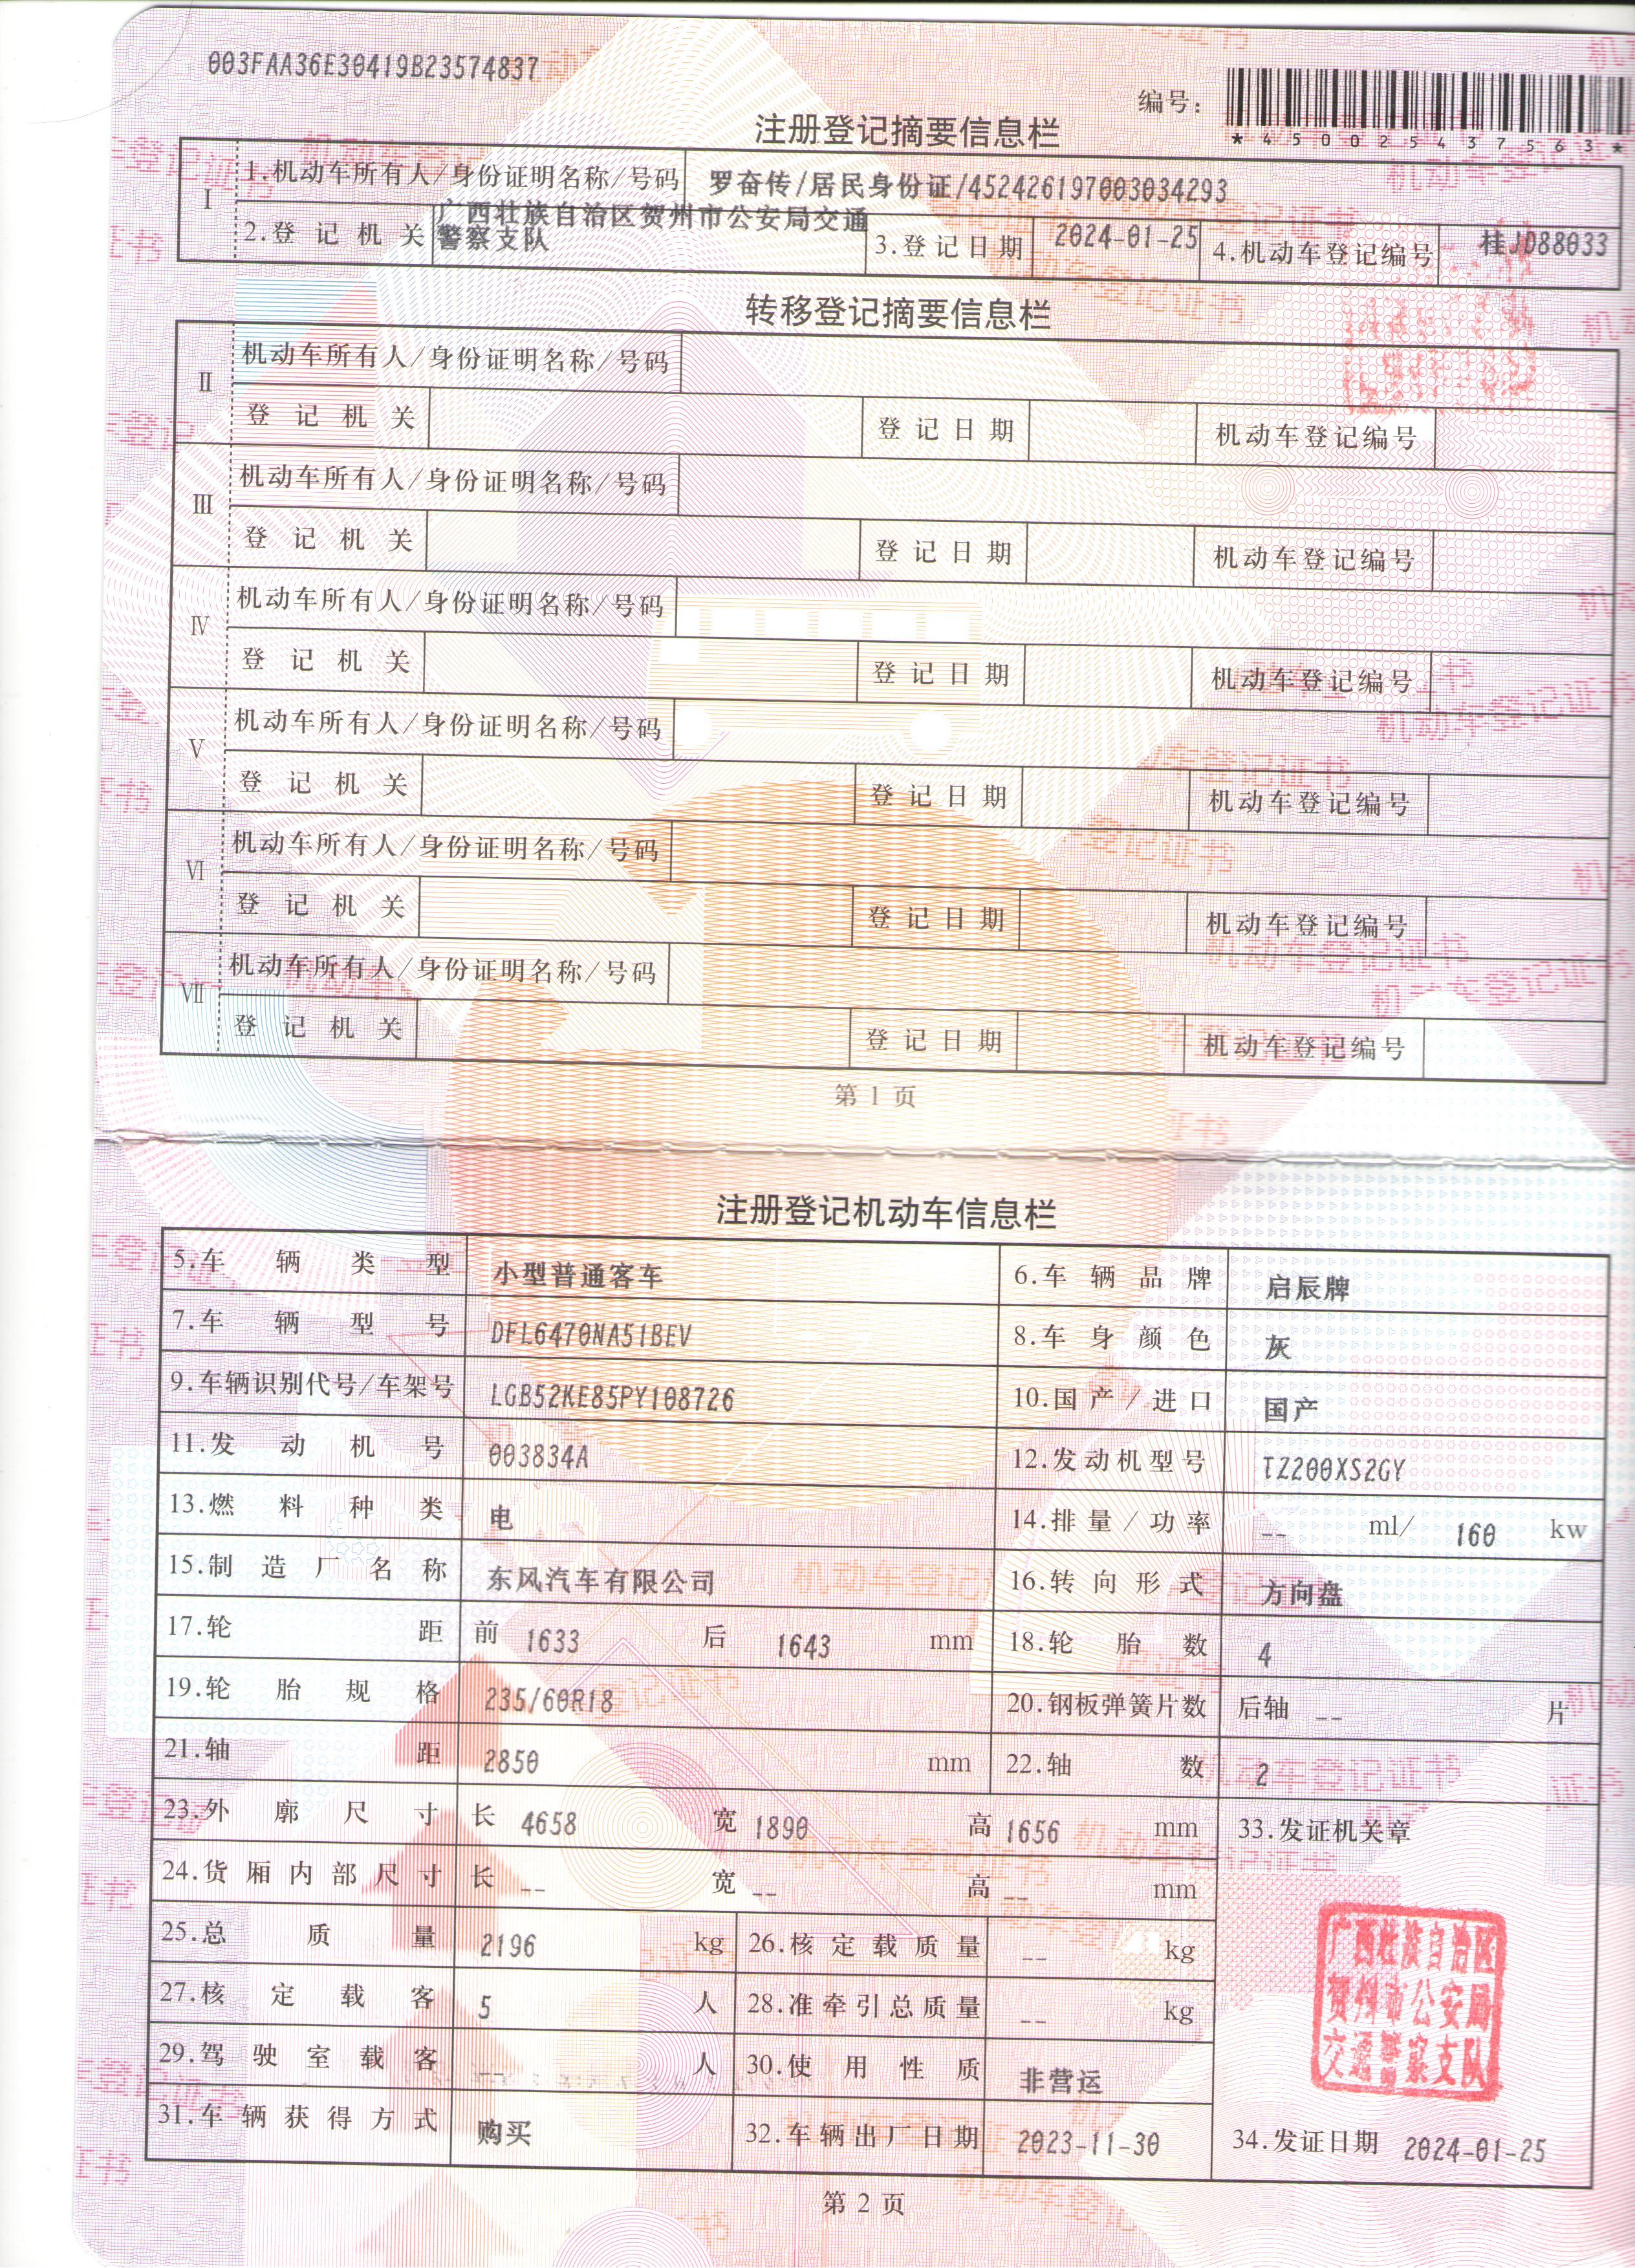 003FAA36E30419B23574837
编号：
*450025437563*
注册登记摘要信息栏
I 1.机动车所有人/身份证明名称/号码 罗奋传/居民身份证/452426197003034293
2.登记机关 广西壮族自治区贺州市公安局交通警察支队 3.登记日期 2024-01-25 4.机动车登记编号 桂JD88033
转移登记摘要信息栏
II 机动车所有人/身份证明名称/号码
登记机关 登记日期 机动车登记编号
III 机动车所有人/身份证明名称/号码
登记机关 登记日期 机动车登记编号
IV 机动车所有人/身份证明名称/号码
登记机关 登记日期 机动车登记编号
V 机动车所有人/身份证明名称/号码
登记机关 登记日期 机动车登记编号
VI 机动车所有人/身份证明名称/号码
登记机关 登记日期 机动车登记编号
VII 机动车所有人/身份证明名称/号码
登记机关 登记日期 机动车登记编号
第 1 页
注册登记机动车信息栏
5.车辆类型 小型普通客车 6.车辆品牌 启辰牌
7.车辆型号 DFL6470NA51BEV 8.车身颜色 灰
9.车辆识别代号/车架号 LGB52KE85PY108726 10.国产/进口 国产
11.发动机号 003834A 12.发动机型号 TZ200XS2GY
13.燃料种类 电 14.排量/功率 -- ml/ 160 kw
15.制造厂名称 东风汽车有限公司 16.转向形式 方向盘
17.轮距 前 1633 后 1643 mm 18.轮胎数 4
19.轮胎规格 235/60R18 20.钢板弹簧片数 后轴 -- 片
21.轴距 2850 mm 22.轴数 2
23.外廓尺寸 长 4658 宽 1890 高 1656 mm 33.发证机关章
24.货厢内部尺寸 长 -- 宽 -- 高 -- mm
25.总质量 2196 kg 26.核定载质量 -- kg
27.核定载客 5 人 28.准牵引总质量 -- kg
29.驾驶室载客 -- 人 30.使用性质 非营运
31.车辆获得方式 购买 32.车辆出厂日期 2023-11-30 34.发证日期 2024-01-25
广西壮族自治区
贺州市公安局
交通警察支队
第 2 页